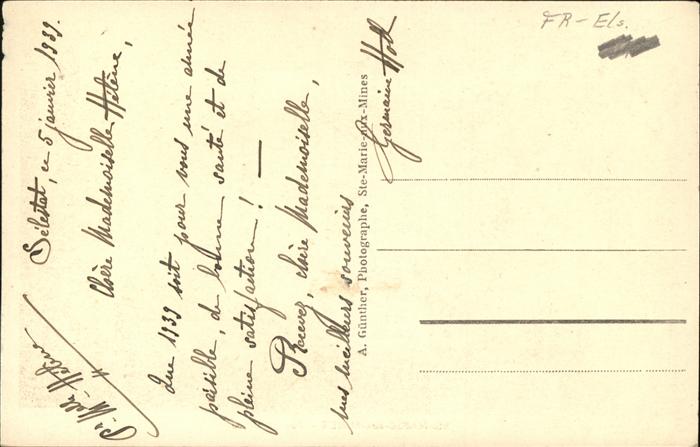 Sélestat, ce 5 janvier 1939.
Chère Mademoiselle Hélène,
Que 1939 soit pour vous une année
paisible, de bonne santé et de
pleine satisfaction! —
Recevez, chère Mademoiselle,
mes meilleurs souvenirs
Germaine Holl
Mlle Hélène
A. Günther, Photographe, Ste-Marie-aux-Mines
FR-Els.